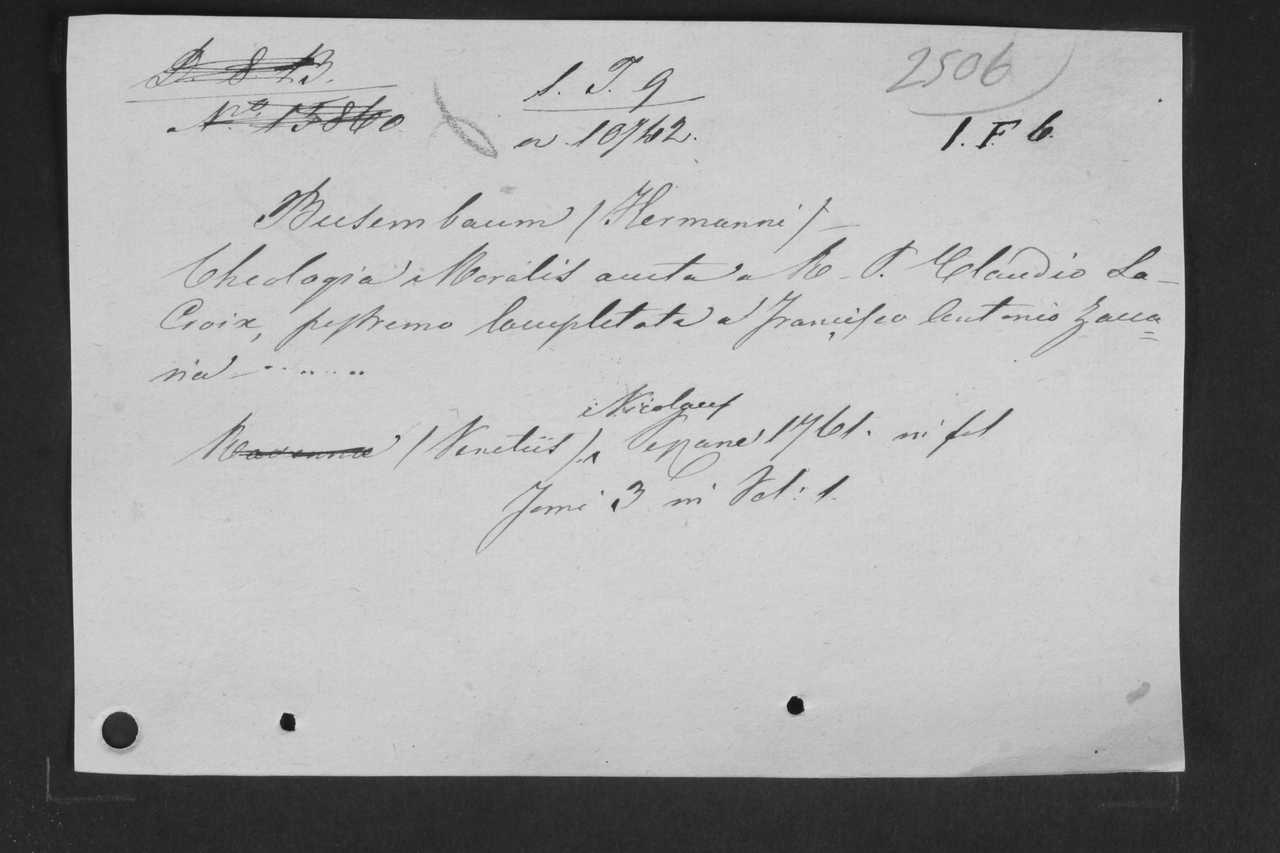 D. 8. 13.
Nro. 15860
1. T. 9
a 10762.
2506
1. F. 6.
Busembaum (Hermanni)
Theologia Moralis aucta a R. P. Claudio La-
Croix, postremo locupletata a Francisco Antonio Zacca=
ria - . . . . .
Nicolaus
Ravenna (Venetiis) Pezzana 1761. in fol
Tomi 3 in Vol: 1.